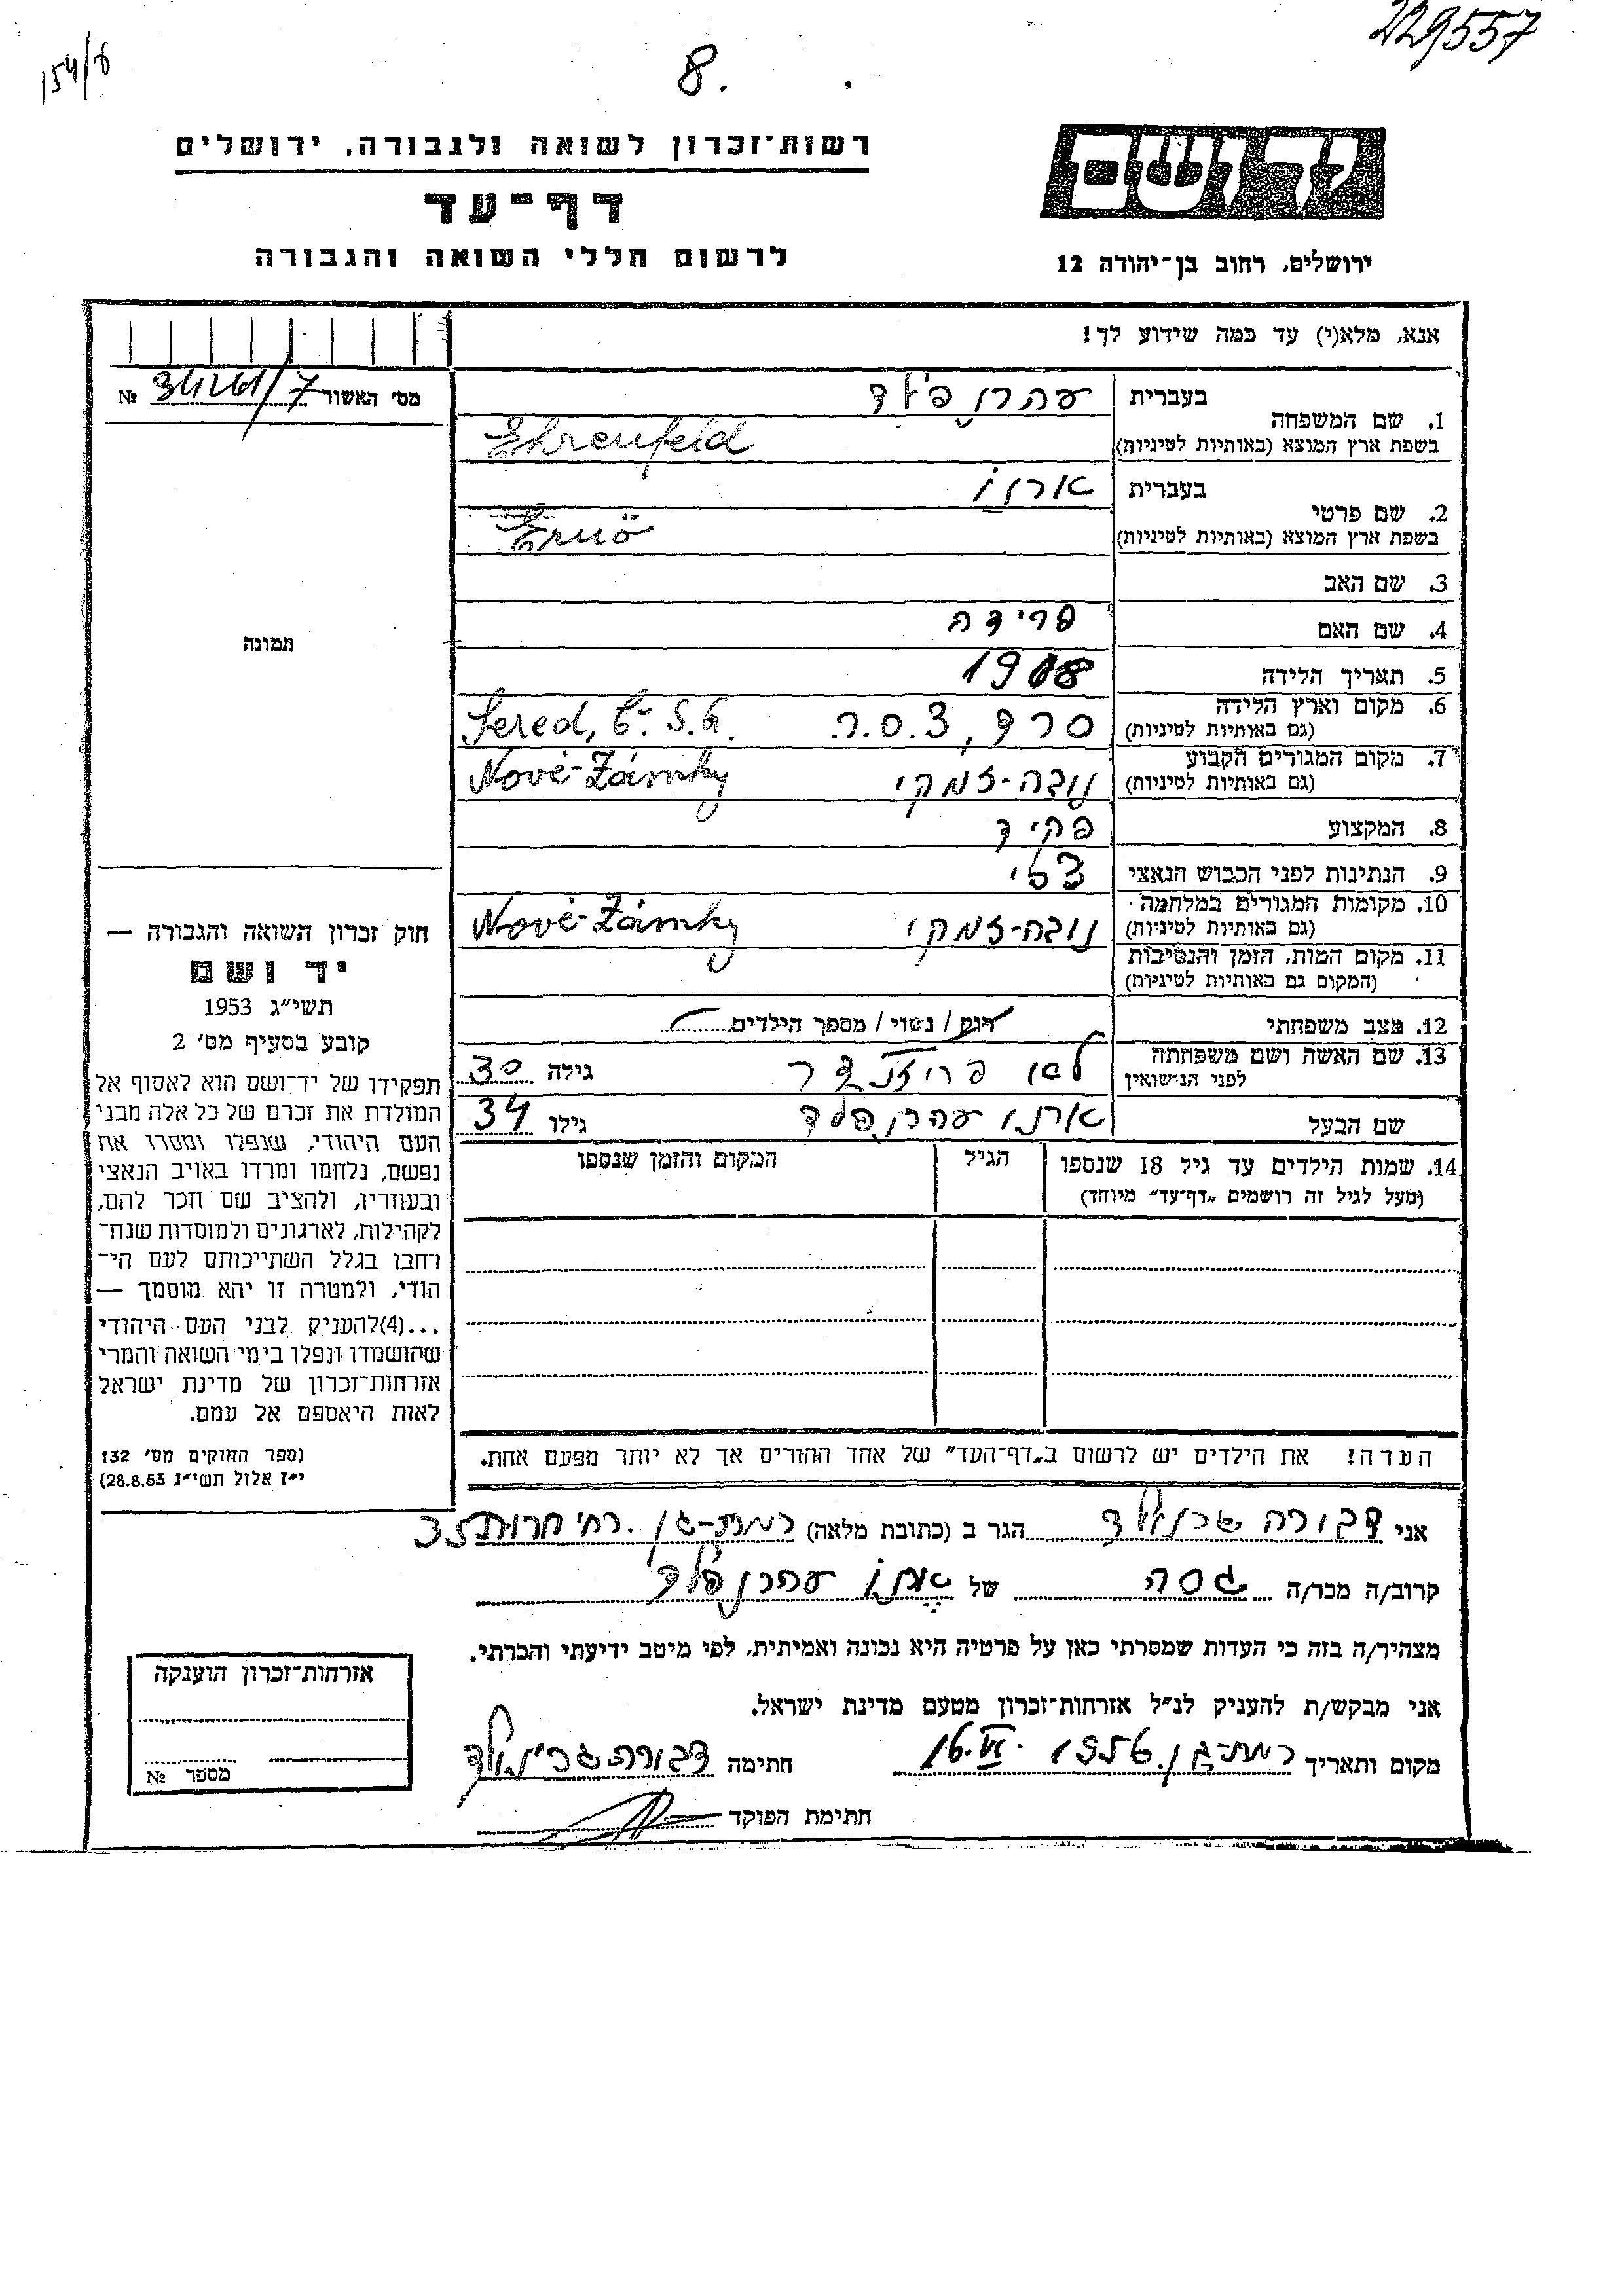 229557
154/8
8.
רשות־זכרון לשואה ולגבורה, ירושלים
דף־עד
לרשום חללי השואה והגבורה
יד ושם
ירושלים, רחוב בן־יהודה 12
אנא, מלא(י) עד כמה שידוע לך!
מס' האשור № /7
1. שם המשפחה
בעברית עהרנפלד
בשפת ארץ המוצא (באותיות לטיניות) Ehrenfeld
2. שם פרטי
בעברית ארנו
בשפת ארץ המוצא (באותיות לטיניות) Ernö
3. שם האב
4. שם האם פרידה
5. תאריך הלידה 1908
6. מקום וארץ הלידה
(גם באותיות לטיניות) סרד, צ.ס.ר. Sered, Č.S.R.
7. מקום המגורים הקבוע
(גם באותיות לטיניות) נובה-זמקי Nové-Zámky
8. המקצוע פקיד
9. הנתינות לפני הכבוש הנאצי צ'כי
10. מקומות המגורים במלחמה
(גם באותיות לטיניות) נובה-זמקי Nové-Zámky
11. מקום המות, הזמן והנסיבות
(המקום גם באותיות לטיניות)
12. מצב משפחתי רווק / נשוי / מספר הילדים
13. שם האשה ושם משפחתה
לפני הנישואין לאו גילה 30
שם הבעל ארנו עהרנפלד גילו 34
14. שמות הילדים עד גיל 18 שנספו
(מעל לגיל זה רושמים „דף־עד" מיוחד)
הגיל
המקום והזמן שנספו
הערה! את הילדים יש לרשום ב„דף־העד" של אחד ההורים אך לא יותר מפעם אחת.
תמונה
חוק זכרון השואה והגבורה —
יד ושם
תשי״ג 1953
קובע בסעיף מס' 2
תפקידו של יד־ושם הוא לאסוף אל
המולדת את זכרם של כל אלה מבני
העם היהודי, שנפלו ומסרו את
נפשם, נלחמו ומרדו באויב הנאצי
ובעוזריו, ולהציב שם וזכר להם,
לקהילות, לארגונים ולמוסדות שנח־
רחבו בגלל השתייכותם לעם הי־
הודי, ולמטרה זו יהא מוסמך —
...(4)להעניק לבני העם היהודי
שהושמדו ונפלו בימי השואה והמרי
אזרחות־זכרון של מדינת ישראל
לאות היאספם אל עמם.
(ספר החוקים מס' 132
י״ז אלול תשי״ג 28.8.53)
אני דבורה הגר ב (כתובת מלאה) רמת-גן רח' חרות 35
קרוב/ה מכר/ה גסה של ארנו עהרנפלד
מצהיר/ה בזה כי העדות שמסרתי כאן על פרטיה היא נכונה ואמיתית, לפי מיטב ידיעתי והכרתי.
אני מבקש/ת להעניק לנ״ל אזרחות־זכרון מטעם מדינת ישראל.
מקום ותאריך רמת-גן 16.VI.1956 חתימה דבורה
חתימת הפוקד
אזרחות־זכרון הוענקה
מספר №